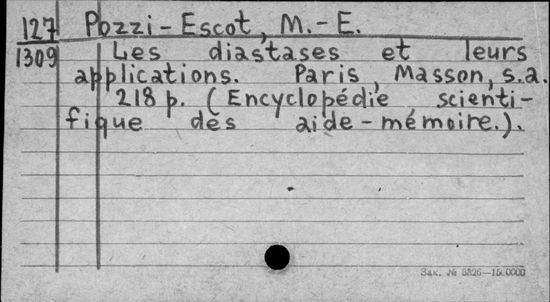 127 Pozzi-Escot, M.-E.
1309 Les diastases et leurs
applications. Paris, Masson, s.a.
218 p. (Encyclopédie scienti-
fique des aide-mémoire.).
Зак. № 8826—15.0000